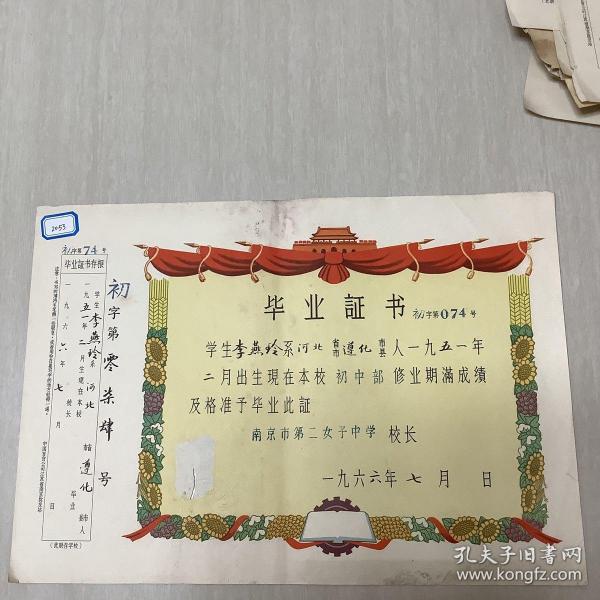 2053
初字第74号
毕业証书存根
学生李燕玲系河北省市遵化市县人
一九五一年二月生現在本校
毕业
校长
一九六六年七月
日
(此联存学校)
初字第零柒肆号
毕业証书
初字第074号
学生李燕玲系河北省市遵化市县人一九五一年
二月出生現在本校初中部修业期滿成绩
及格准予毕业此証
南京市第二女子中学 校长
一九六六年七月 日
孔夫子旧书网
www.kongfz.com